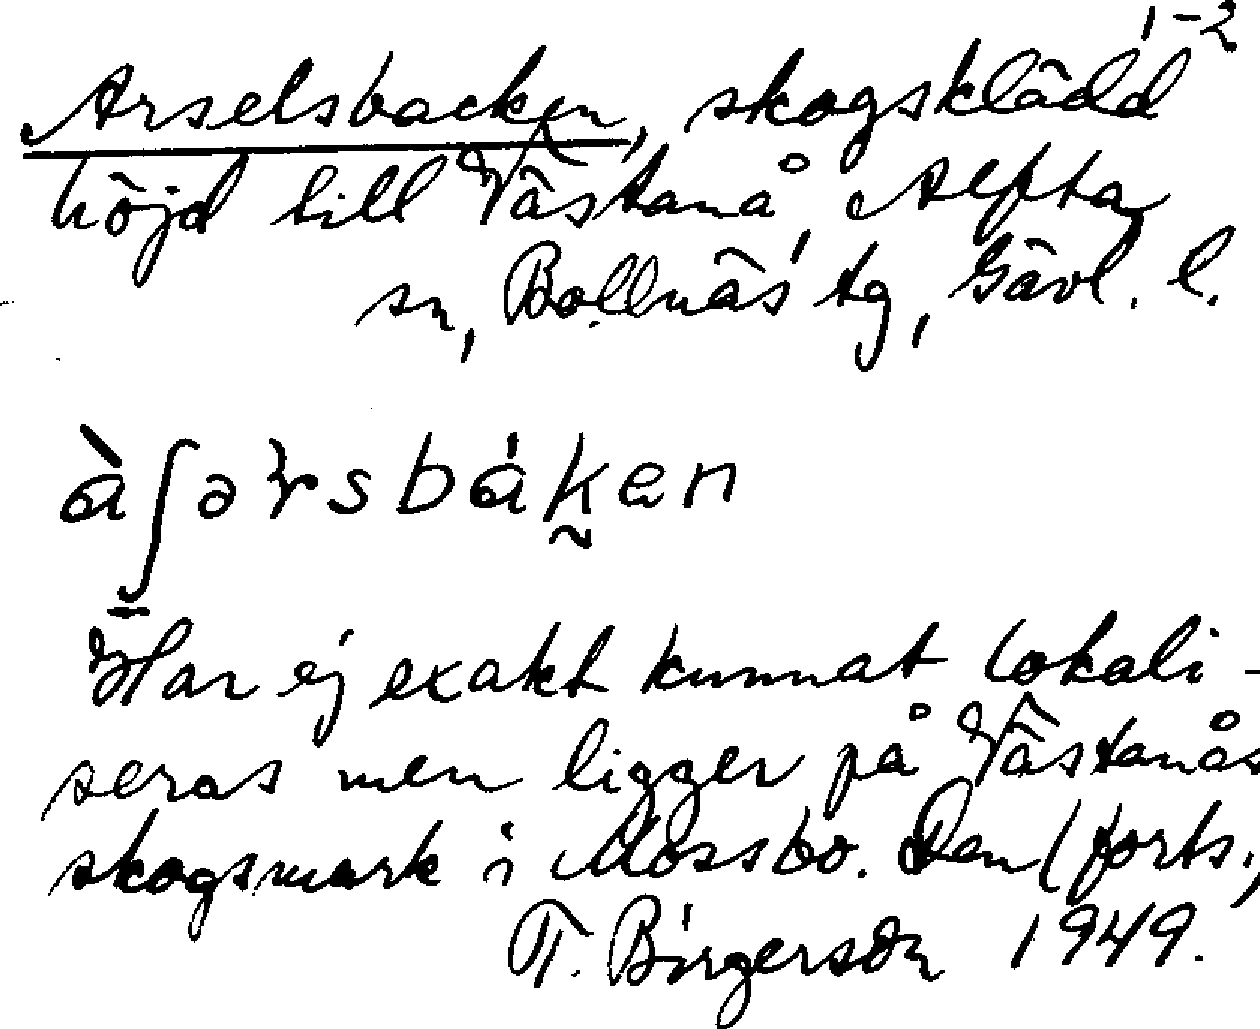 1-2
Arselsbacken, skogsklädd
höjd till Västanå, Alfta
sn, Bollnäs tg, Gävl. l.
ɑ̀ʃərsbɑ́k̰en
Har ej exakt kunnat lokali-
seras men ligger på Västanås
skogsmark i Mossbo. Den (forts.)
T. Birgerson 1949.